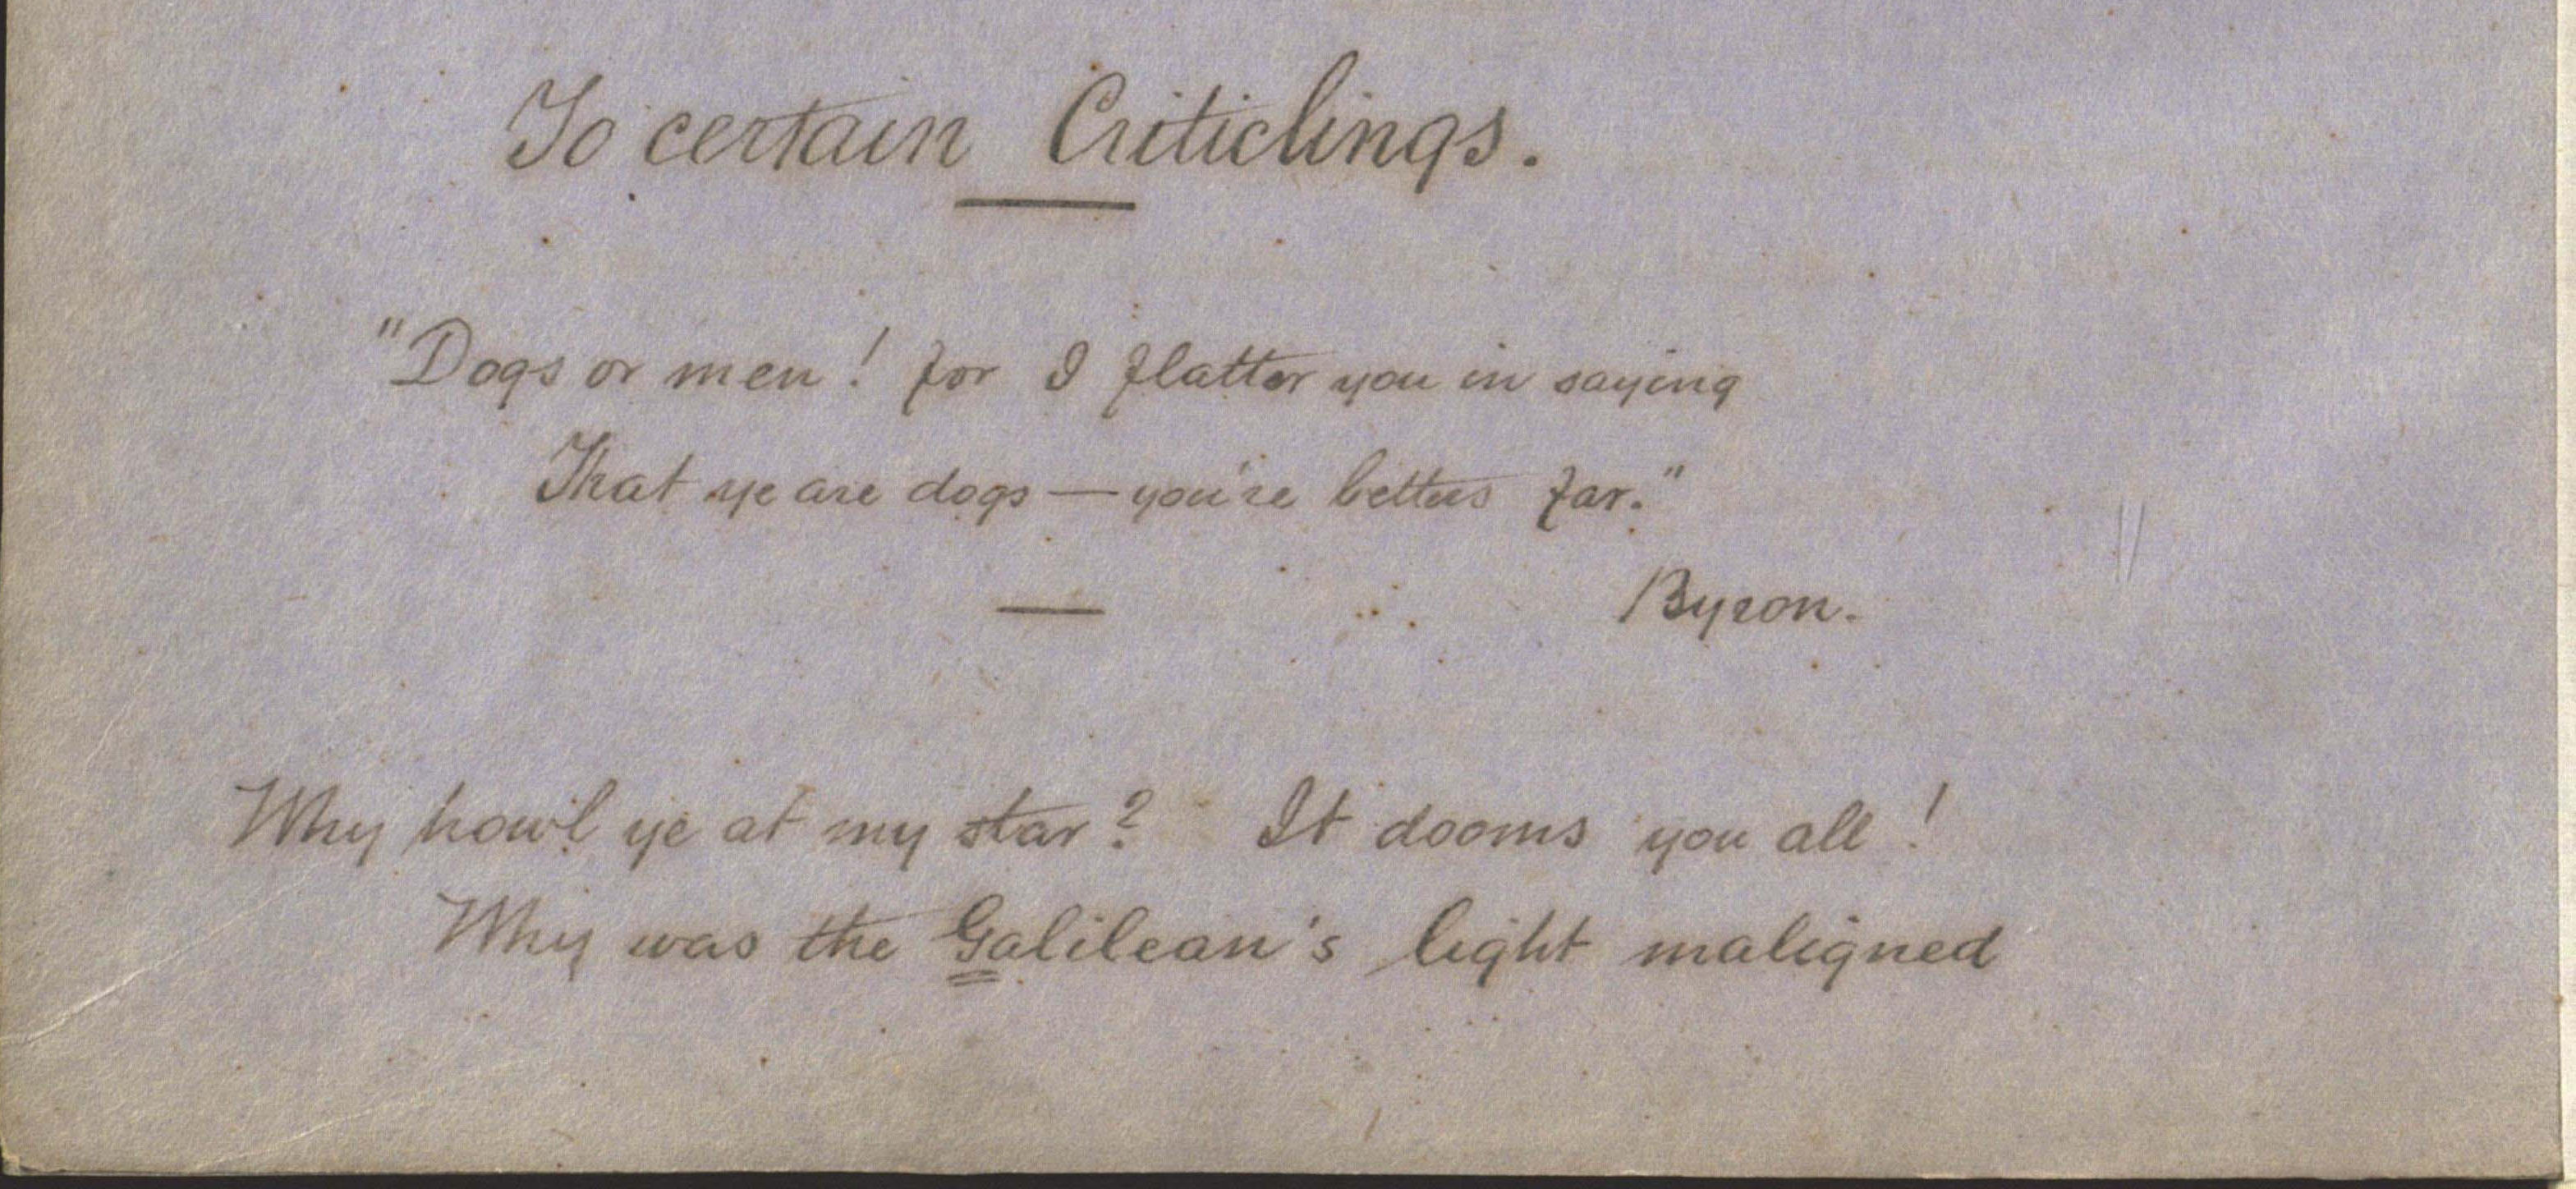 To certain Criticlings.
"Dogs or men! for I flatter you in saying
That ye are dogs — you're betters far."
Byron.
Why howl ye at my star? It dooms you all!
Why was the Galilean's light maligned